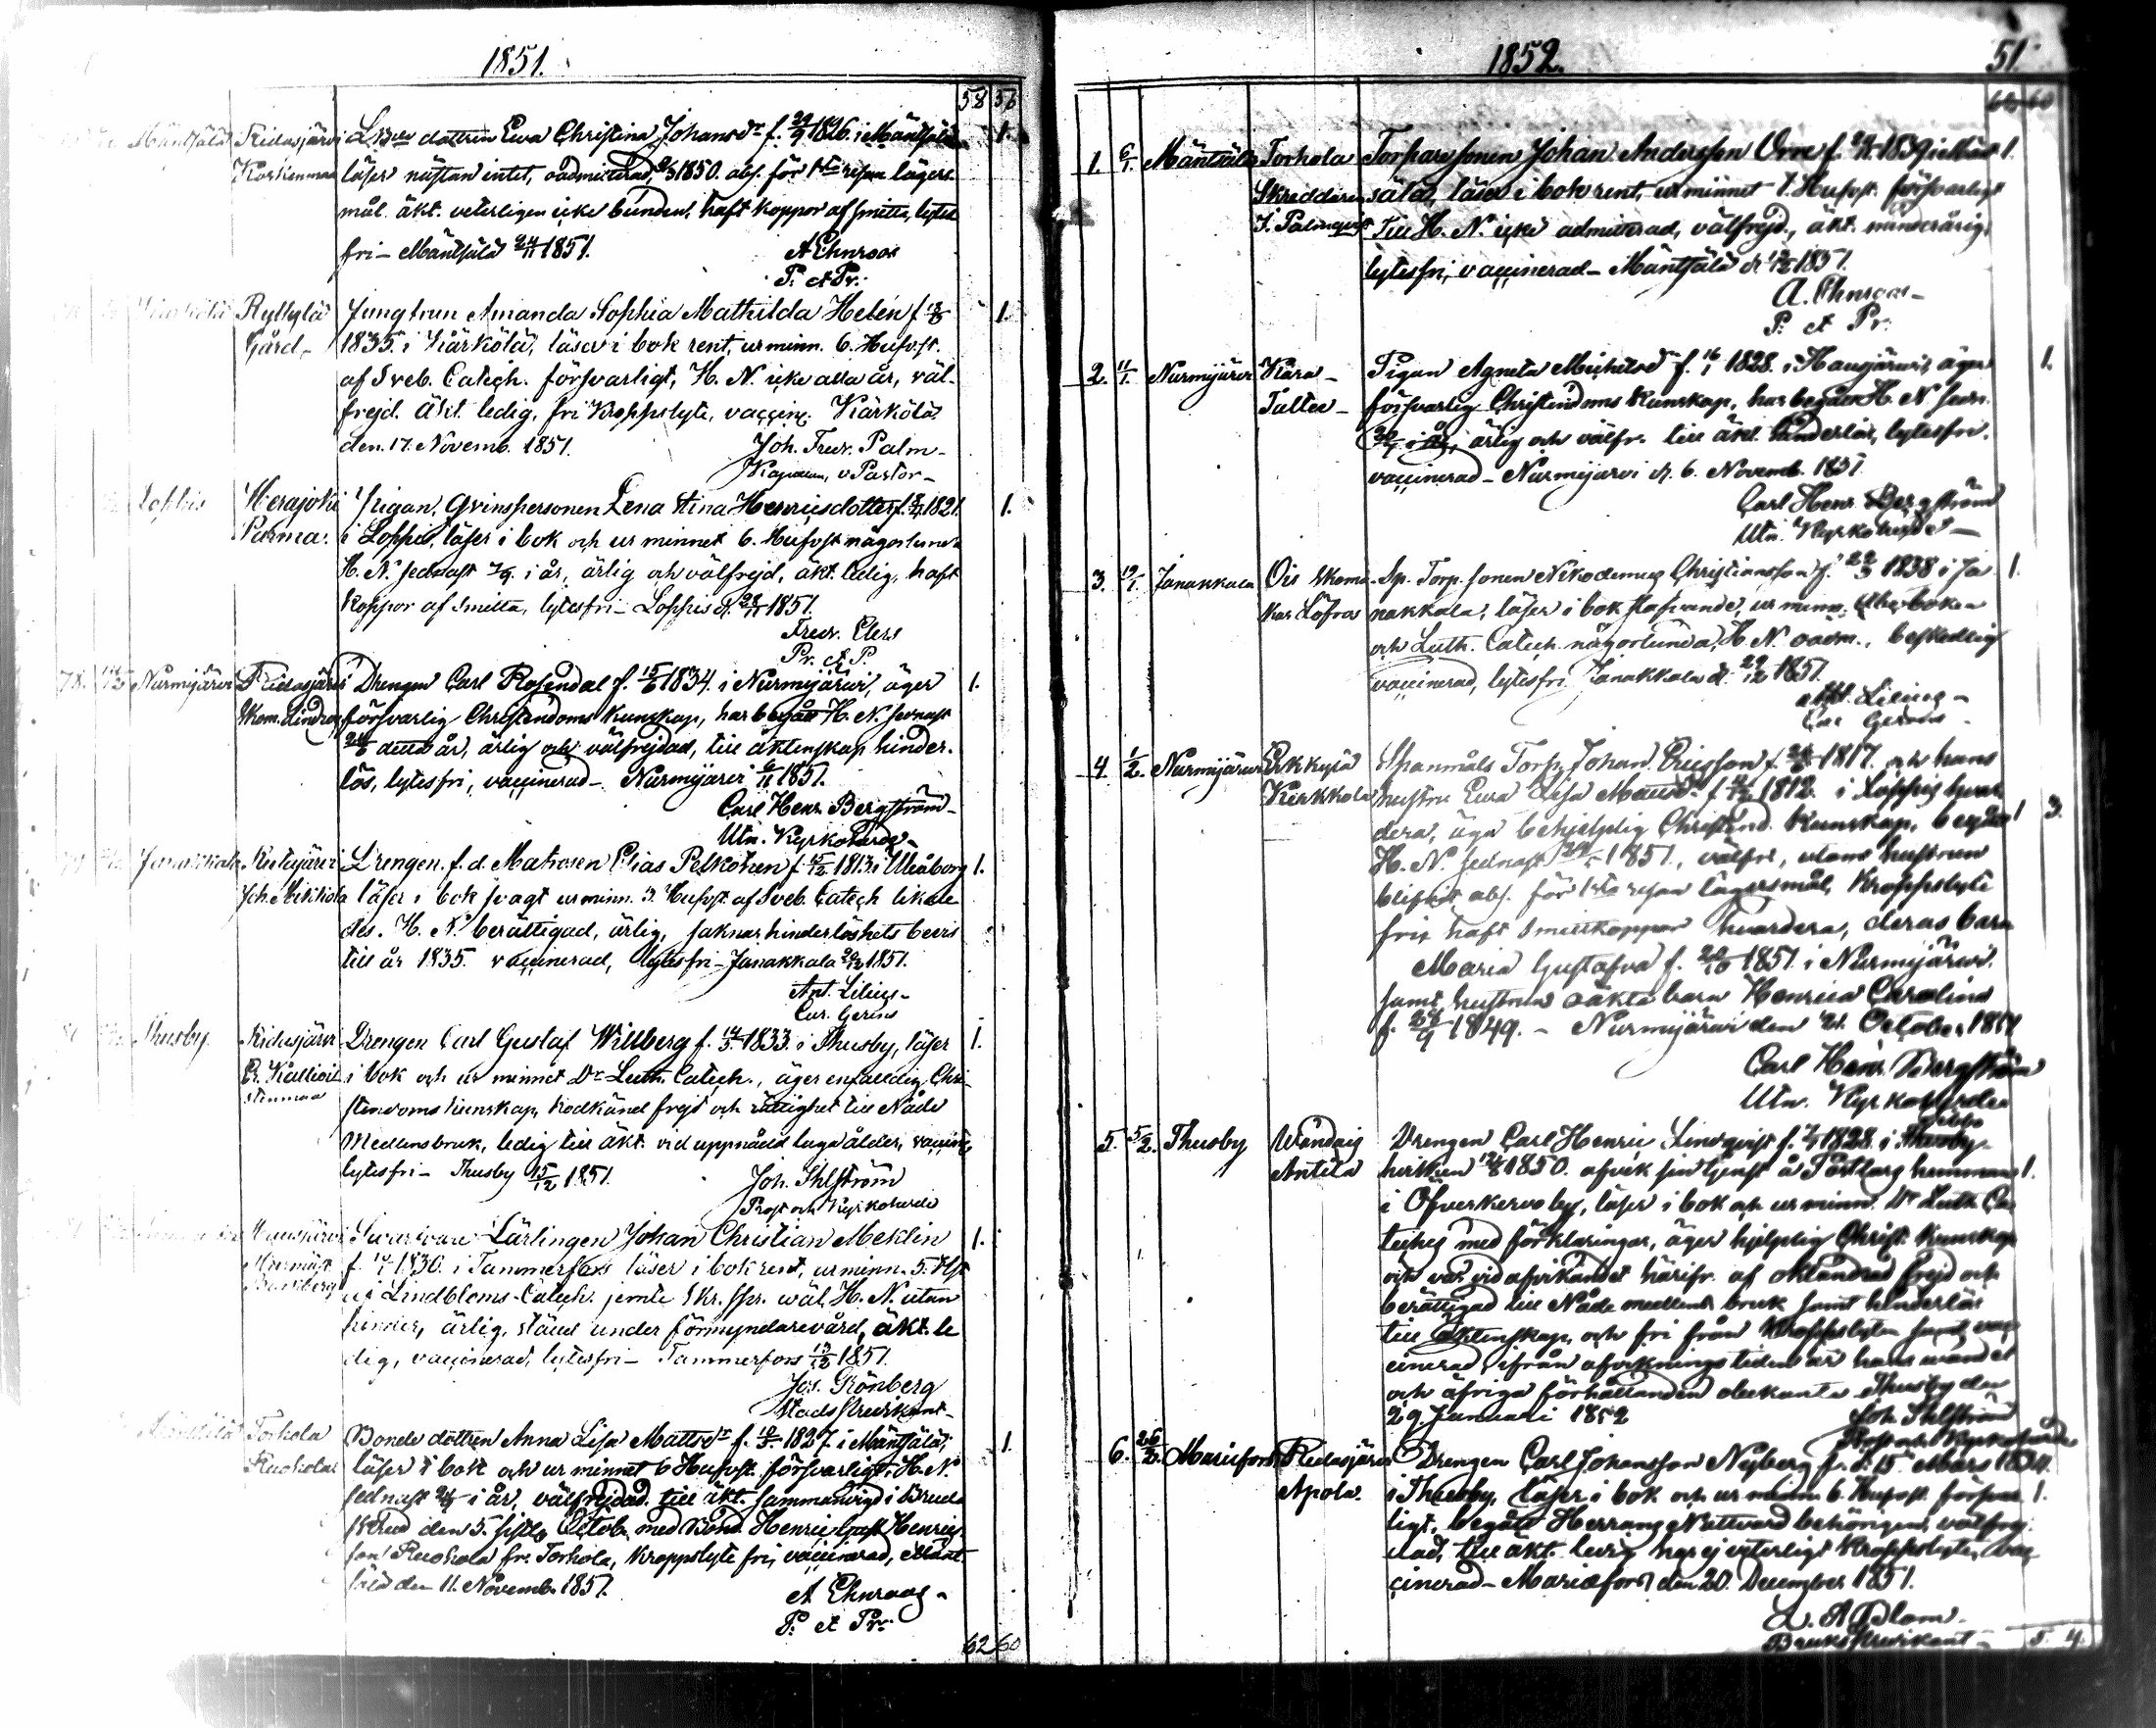 1851.
58 56
Mäntsälä Ridasjärvi dottren Ewa Christina Johansdr f. 29/9 1826 i Mäntsälä 1.
Koskenmaa läser nästan intet, oadmitterad, 1850. abs. för 1sta resan lägers-
mål. äkt. veterligen icke bunden, haft koppor af smitta, lytes
fri – Mäntsälä 24/11 1851. A Ehnroos
P. et Pr.
Kärkölä Ryttylä Jungfrun Amanda Sophia Mathilda Helén f. 1.
Gård – 1835. i Kärkölä, läser i bok rent, ur minn. 6. Hufvst.
af Sveb. Catech. försvarligt, H. N. icke alla år, väl-
frejd. äkt. ledig, fri Kroppslyte, vaccine. Kärkölä
den 17. Novemb. 1851. Joh. Fredr. Palm –
Kapellan, v Pastor –
Loppis Herajoki Pigan, Qvinspersonen Lena Stina Henricsdotter f. 1821. 1.
Parma. i Loppis, läser i bok och ur minnet 6. Hufvst någorlunda
H. N. sednast i år, ärlig och välfrejd, äkt. ledig, haft
koppor af smitta, lytesfri – Loppis d. 28/11 1851.
Fredr. Elers
Pr. et P.
78. Nurmijärvi Ridasjärvi Drengen Carl Rosendal f. 15/6 1834. i Nurmijärvi, äger 1.
Skom. Lindroos försvarlig Christendoms kunskap, har begått H. N. sednast
detta år, ärlig och välfrejdad, till äktenskap hinder-
lös, lytesfri, vaccinerad – Nurmijärvi 6/11 1851.
Carl Henr. Bergström –
Utn. Kyrkoherde –
Janakkala Ridasjärvi Drengen f. d. Matrosen Elias Pelkonen f. 15/12 1813. i Uleåborg 1.
Joh. Mikkola läser i bok svagt ur minn. 3. Hufvst af Sveb. Catech likale
des. H. N. berättigad, ärlig, saknar hinderlöshets bevis
till år 1835. vaccinerad, lytesfri – Janakkala 1851.
Ant. Lilius –
Cur. Gerens
Thusby. Ridasjärvi Drengen Carl Gustaf Willberg f. 14/3 1833. i Thusby, läser 1.
i bok och ur minnet Dr Luth. Catech., äger enfaldig Chri-
stendoms kunskap, kodkänd frejd och rättighet till Nåde
Medlens bruk, ledig till äkt. vid uppnådd laga ålder,
lytesfri – Thusby 15/12 1851. Joh. Ihlström
Prost och Kyrkoherde
Hausjärvi Svarfvare Lärlingen Johan Christian Meklin 1.
f. 10/1 1830. i Tammerfors läser i bok rent, ur minn. 5. Hst
ur Lindbloms Catech. jemte Skr. spr. wäl, H. N. utan
hinder, ärlig, ställd under förmyndarevård, äkt. le
dig, vaccinerad, lytesfri – Tammerfors 13/12 1851.
Jos. Grönberg
Stads Predikant –
Mäntsälä Torhola Bonde dottren Anna Lisa Mattsdr f. 10/3. 1827. i Mäntsälä, 1.
Ruohola läser i bok och ur minnet 6 Hufvst. försvarligt, H. N.
sednast i år, välfrejdad. till äkt. sammanvigd i Bruda
skrud den 5. sistl. Octob. med Bond. Henric Gust. Henrics
son Ruohola fr. Torhola, Kroppslyte fri, vaccinerad, Mänt
sälä den 11. Novemb. 1851. A Ehnroos –
P. et Pr.
62 60
1852. 51.
1. 6/1. Mäntsälä Torhola Torpare sonen Johan Andersson Orre f. 1839 i Mänt 1.
Skreddaren sälä, läser i bok rent, ur minnet 1. Hufvst. försvarligt
J. Palmqvist Till H. N. icke admitterad, välfrejd., äkt. minderårig,
lytesfri, vaccinerad – Mäntsälä d. 1851.
A. Ehnroos –
P. et Pr.
2. 11/1. Nurmijärvi Kara – Pigan Agneta Michelsdr f. 16/1 1828. i Hausjärvi, äger 1.
Taltee – försvarlig Christendoms Kunskap, har begått H. N. sedn.
i år, ärlig och välfr. till äkt. hinderlös, lytesfri.
vaccinerad – Nurmijärvi d. 6. Novemb. 1851.
Carl Henr. Bergström
Utn. Kyrkoherde –
3. 19/1. Janakkala Ois Skoma- Sp. Torp. sonen Nikodemus Christiansson f. 22/3 1838 i Ja- 1.
kar Löfroos nakkala, läser i bok stafvande, ur minn. Abc boken
och Luth. Catech. någorlunda, H. N. oadm., beskedlig
vaccinerad, lytesfri. Janakkala d. 29/12 1851.
Ant. Lilius –
Cur Gerens –
4. 1/2. Nurmijärvi Erkkylä Spanmåls Torp. Johan Ericsson f. 1817. och hans
Kirkkola hustru Ewa Lisa Mattsdr f. 1812. i Loppis hvar
dera, äga behjelplig Christend. kunskap, begått 1 3.
H. N. sednast 1851, välfri, utom hustrun
blifvit abs. för 1sta resan lägersmål, Kroppslyte
fri, haft smittkoppor hvardera, deras barn
Maria Gustafva f. 20/10 1851. i Nurmijärvi.
samt hustruns oäkta barn Henrica Carolina
f. 24/9 1849. – Nurmijärvi den 21. October 1851
Carl Henr. Bergström
Utn. Kyrkoherde
5. 5/2. Thusby Wändaig Drengen Carl Henric Lindqvist f. 1828. i Thusby
Antila hvilken 1850. afvek sin tjenst å Pärtlarg hemman 1.
i Öfverkervo by, läser i bok och ur minn. Dr Luth. Ca-
teches med förklaringar, äger hjelplig Christ. kunskap
och var vid afvikandet härifr. af oklandrad frejd och
berättigad till Nåde medlens bruk samt hinderlös
till äktenskap, och fri från Kroppslyten samt vac
cinerad, ifrån afvikningstiden är hans vandel
och öfriga förhållanden obekanta Thusby den
29. Januari 1852 Joh. Ihlström
Prost och Kyrkoherde
6. 26/2. Mariefors Ridasjärvi Drengen Carl Johansson Nyberg f. d. 15 Mars 1834.
Apola. i Thusby, läser i bok och ur minn. 6. Hufvst. försvar 1.
ligt, begått Herrans Nattvard behörigen, välfrej-
dad, till äkt. ledig har ej veterligt Kroppslyte, vac
cinerad – Mariefors den 20. December 1851.
Bruks Predikant – 5. 4.